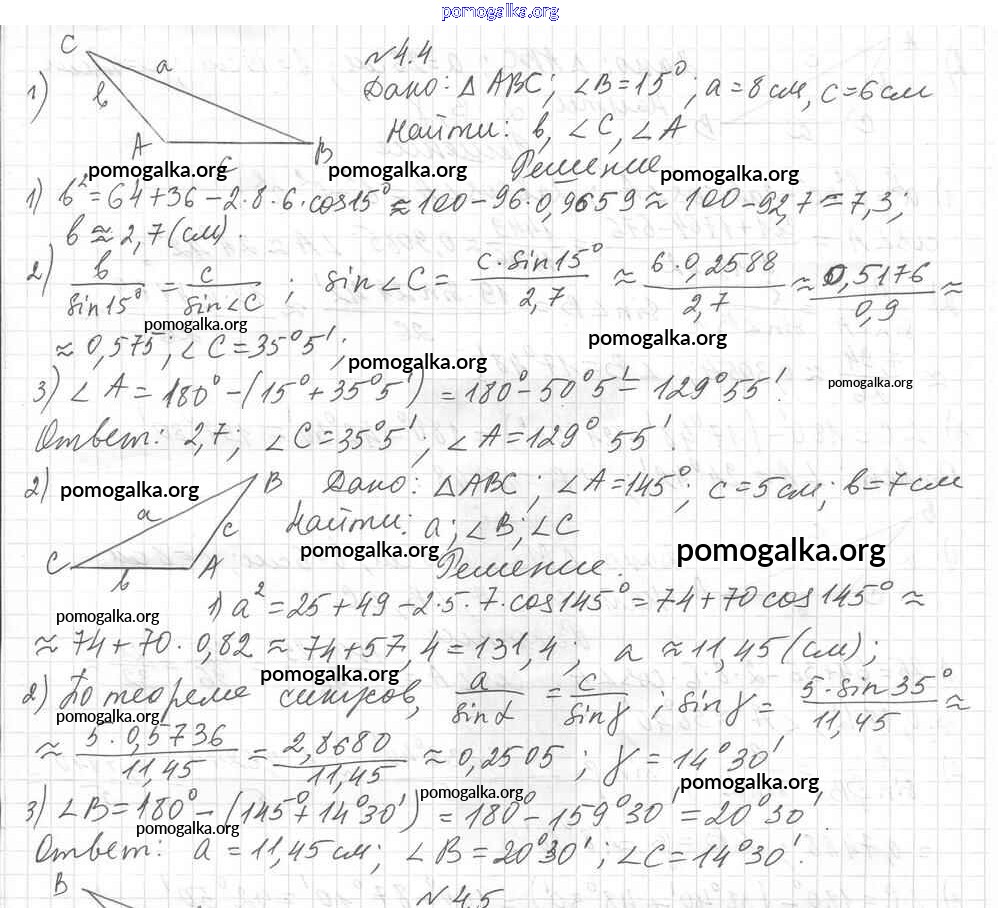 pomogalka.org
№4.4
1) C a b A B 6
Дано: △ ABC; ∠B=15°; a=8 см, c=6 см
Найти: b, ∠C, ∠A
pomogalka.org pomogalka.org pomogalka.org
Решение
1) b²=64+36-2·8·6·cos15°≈100-96·0,9659≈100-92,7=7,3;
b≈2,7(см).
2) b/sin15° = c/sin∠C ; sin∠C = c·sin15°/2,7 ≈ 6·0,2588/2,7 ≈ 0,5176/0,9 ≈
pomogalka.org pomogalka.org
≈ 0,575; ∠C=35°5';
pomogalka.org pomogalka.org
3) ∠A=180°-(15°+35°5')=180°-50°5'=129°55'.
Ответ: 2,7; ∠C=35°5'; ∠A=129°55'.
2) C a B c A b
pomogalka.org
Дано: △ABC; ∠A=145°; c=5см; b=7см
Найти: a; ∠B; ∠C
pomogalka.org pomogalka.org
Решение.
pomogalka.org
1) a²=25+49-2·5·7·cos145°=74+70cos145°≈
≈74+70·0,82≈74+57,4=131,4; a≈11,45(см);
pomogalka.org
2) По теореме синусов, a/sinα = c/sinγ ; sinγ = 5·sin35°/11,45 ≈
pomogalka.org
≈ 5·0,5736/11,45 = 2,8680/11,45 ≈ 0,2505; γ=14°30'
pomogalka.org pomogalka.org
3) ∠B=180°-(145°+14°30')=180°-159°30'=20°30'.
pomogalka.org
Ответ: a=11,45см; ∠B=20°30'; ∠C=14°30'.
B №4.5